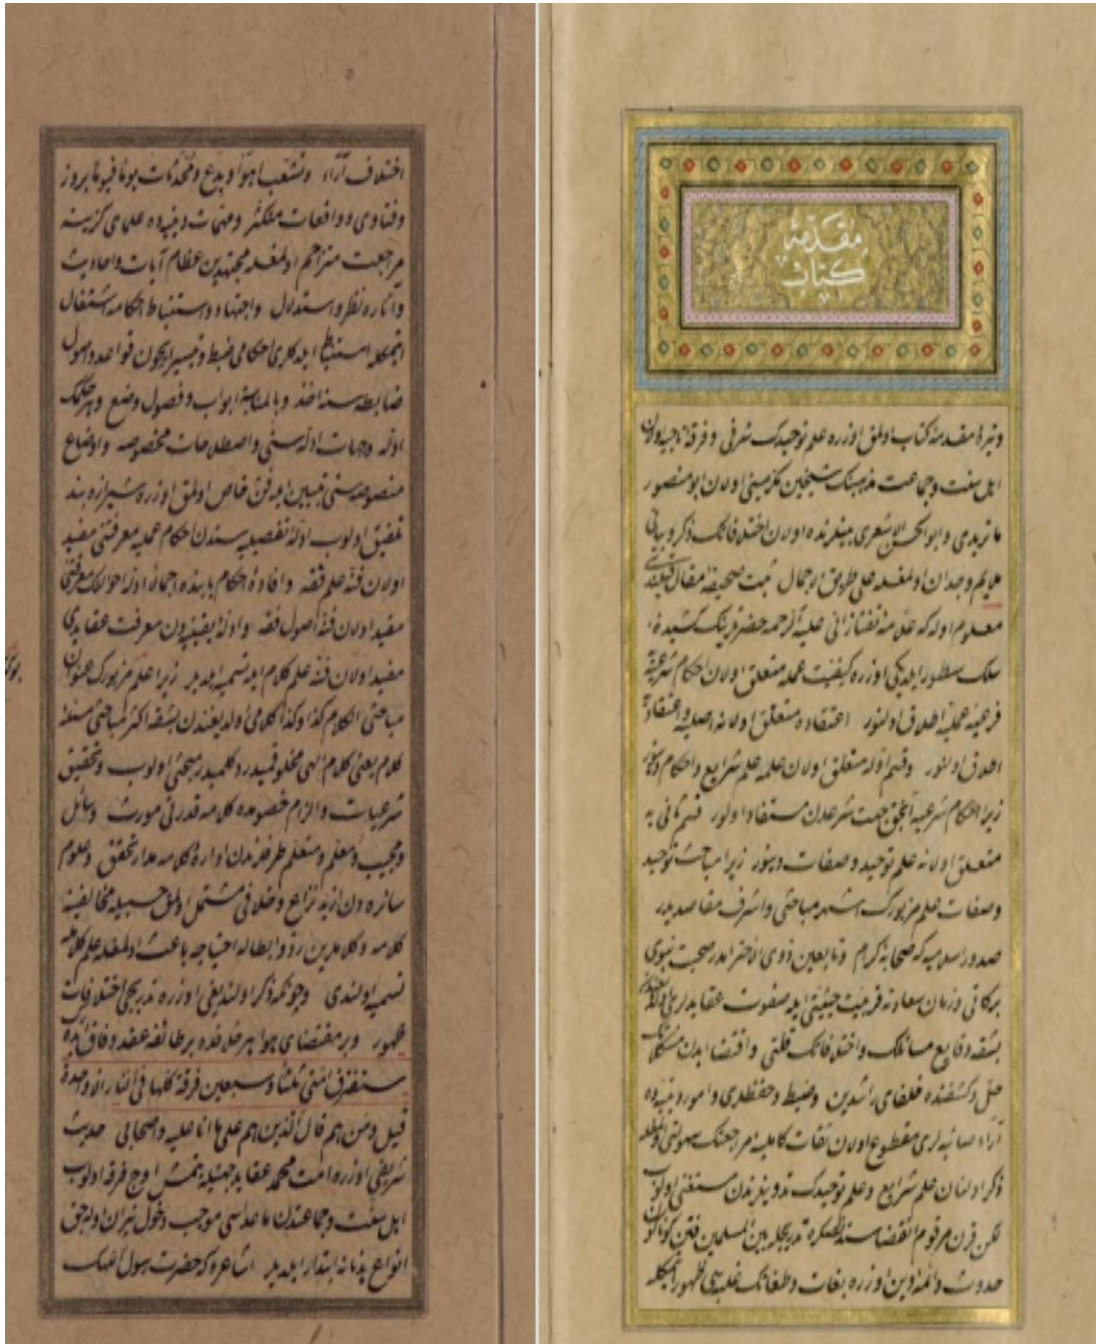 مقدمۀ
كتاب
مقدمۀ كتاب اولمق اوزره علم توحیدك شرفی و فرقۀ ناجیه اولان
اهل سنت وجماعت مذهبنك شیخین مكرمینی اولان ابو منصور
ماتریدی و ابو الحسن الاشعری بینلرنده اولان اختلافاتك ذكر و بیانی
ملایم وجدان اولمغله علی طریق الاجمال ثبت صحیفۀ مقال قلندی
معلوم اوله كه علامه تفتازانی علیه الرحمه حضرتلرینك كشیدۀ
سلك سطور ایلدیكی اوزره كیفیت عمله متعلق اولان احكام شرعیه
فرعیه عملیه اطلاق اولنور اعتقاده متعلق اولانه اصلیه و اعتقادیه
اطلاق اولنور وقسم اوله متعلق اولان علمه علم شرایع واحكام دینور
زیرا احكام شرعیه آنجق جهت شرعدن مستفاد اولور قسم ثانی یه
متعلق اولانه علم توحید وصفات دینور زیرا مباحث توحید
وصفات علم مزبورك اشهر مباحثی واشرف مقاصدیدر
صدور اسلامیه كه صحابۀ كرام وتابعین ذوی الاحترامدر صحبت نبوی
بركاتی وزمان سعادته قربیت حیثیتی ایله صفوت عقایدلری
بشقه وقایع مسالك واختلافاتك قلتی واقتضا ایدن مشكلاتك
حل وكشفنده خلفای راشدین وضبط وحفظلری وامور دینیه ده
آراء صائبه لری مقطوع اولان ثقات كاملینه مراجعتك سهولتی اولمغله
ذكر اولنان علم شرایع وعلم توحیدك تدویندن مستغنی اولوب
لكن قرن مرقوم انقضاسندنصكره تدریجله بین المسلمین فتن كوناكون
حدوث وائمۀ دین اوزره بغات وطغاتك غلبه سی ظهور ایتمكله
اختلاف آراء وتشعب اهوا وبدع ومحدثات یوما فیوما بروز
وفتاوی وواقعات متكثر ومهمات دینیه ده علمای گزینه
مراجعت متزاحم اولمغله مجتهدین عظام آیات واحادیث
وآثاره نظر واستدلال واجتهاد واستنباط احكامه اشتغال
ایتمكله استنباط ایلدكلری احكامی ضبط وتیسیر ایچون قواعد واصول
ضابطه سنه اخذ وبالمناسبه ابواب وفصول وضع وهر حكمك
ادله وجهات ادله سنی واصطلاحات مخصوصه واوضاع
منصوصه سنی تبیین ایله فن خاص اولمق اوزره شیرازه بند
تلفیق اولوب ادلۀ تفصیلیه سندن احكام عملیه معرفتنی مفید
اولان فنه علم فقه وافادۀ احكام بابنده اجمالا ادله احوالنك معرفتنی
مفید اولان فنه اصول فقه وادلۀ یقینیه دن معرفت عقایدی
مفید اولان فنه علم كلام ایله تسمیه ایلدیلر زیرا علم مزبورك عنوان
مباحثی الكلام كذا وكذا كلامی اولدیغندن بشقه اكثر مباحثی مسئلۀ
كلام یعنی كلام الهی مخلوقمیدر دكلمیدر مبحثی اولوب وتحقیق
شرعیات والزام خصومده كلامه قدرتی مورث وسائل
ومجیب ومعلم ومتعلم طرفلرندن ادارۀ كلامه مدار تحقق وعلوم
سائره دن ازید نزاع وخلافی مشتمل اولمق حسبیله مخالفینه
كلامه وكلاملرین رد وابطاله احتیاجه باعث اولمغله علم كلامله
تسمیه اولندی وچونكه ذكر اولندیغی اوزره تدریجی اختلافات
ظهور وبر مقتضای هوا هر خلافده بر طائفه عقد وفاق
ستفترق امتی ثلثا وسبعین فرقة كلها فی النار الا واحدة
قیل ومن هم قال الذین هم علی ما انا علیه واصحابی حدیث
شریفی اوزره امت محمد عقاید جهتیله یتمش اوچ فرقه اولوب
اهل سنت وجماعتدن ماعداسی موجب دخول نیران اوله جق
انواع ابتدار ایلدیلر اشاعره كه حضرت رسول